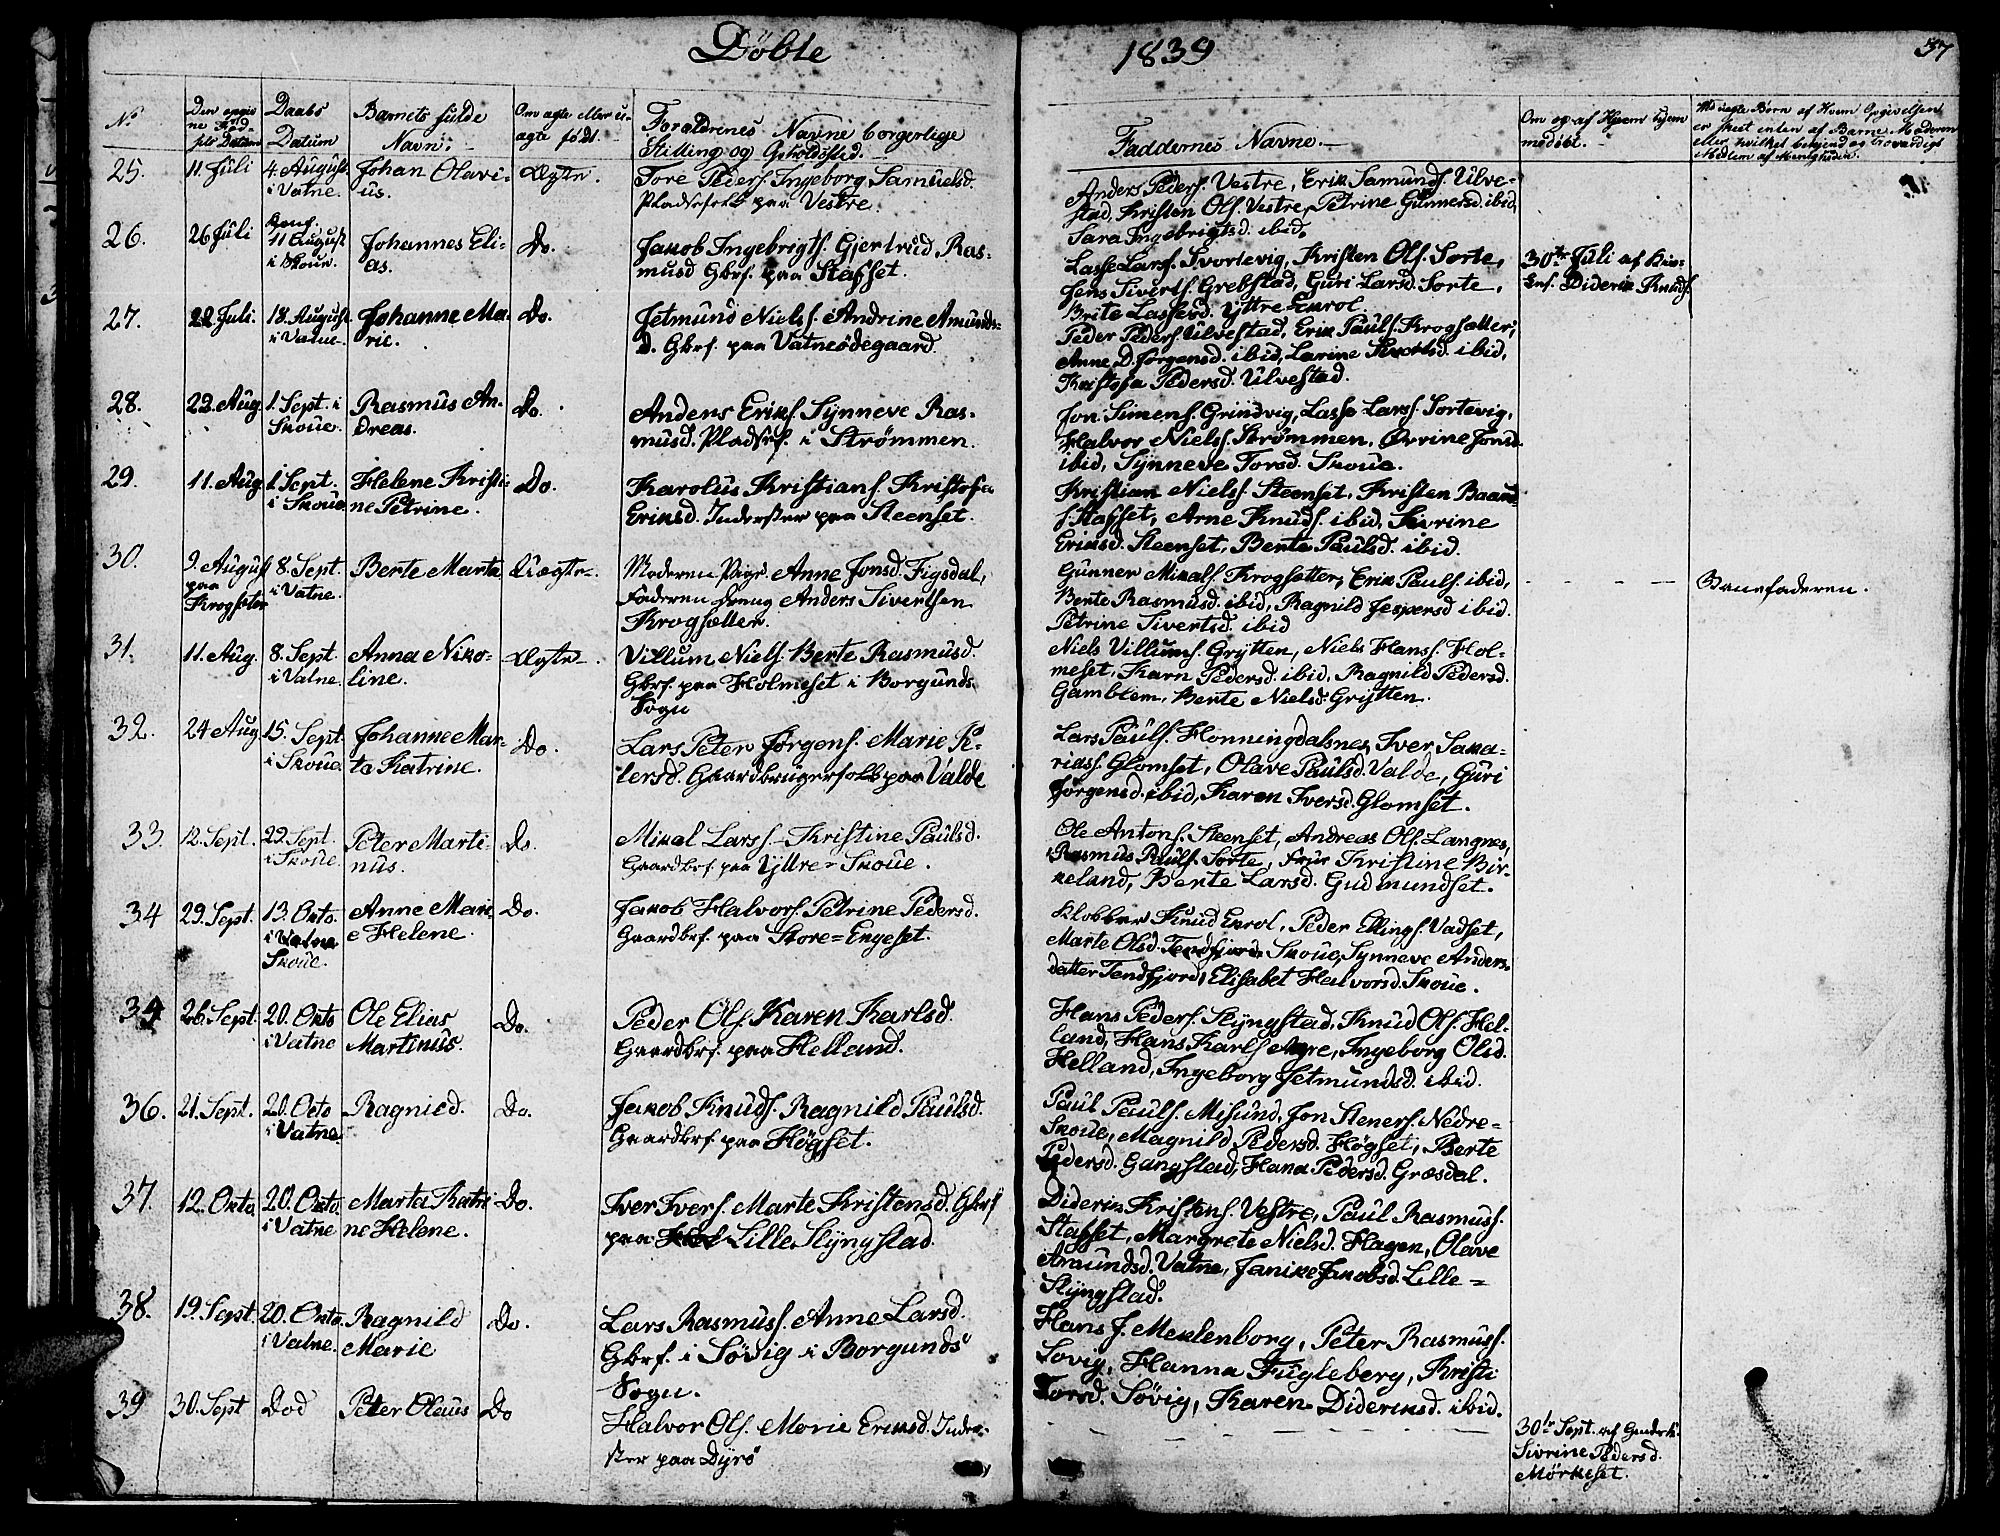 Döbte 1839 37
No
Den opgivne Födsels Datum
Daabs Datum
Barnets fulde Navn.
Om ægte eller uægte födt.
Forældrenes Navne borgerlige Stilling og Opholdssted.
Faddernes Navne.
Om og af Hvem hjemmedöbt.
25. 11 Juli 4. August i Vatne. Johan Olavius. Ægte. Tore Peders. Ingeborg Samuelsd.
Pladsefolk paa Vestre.
Anders Peders. Vestre, Erik Samunds. Ulve-
stad, Kristen Ols. Vestre, Petrine Gunnersd. ibid,
Sara Ingebrigtsd. ibid.
26. 26 Juli Konf. 11 August i Skoue. Johannes Elias. Do. Jakob Ingebrigts. Gjertrud Ras-
musd Gbrf. paa Stafset.
Lasse Lars. Svortevig, Kristen Ols. Sorte,
Jens Siverts. Grebstad, Guri Larsd. Sorte,
Brite Lassesd. Yttre=Enrol.
30te Juli af
Diderik Knuds.
27. 22 Juli. 18. August i Vatne. Johanne Marie. Do. Jetmund Niels. Andrine Amunds-
d. Gbrf. paa Vatneödegaard.
Peder Peders. Ulvestad, Erik Pauls. Krogsætter,
Anne D. Jörgensd. ibid, Larine ibid,
Kristofa Pedersd. Ulvestad.
28. 22. Aug. 1. Sept. i Skoue. Rasmus Andreas. Do. Anders Eriks. Synneve Ras-
musd. Pladsrf. i Strömmen.
Jon Simens. Grindvig, Lasse Lars. Sortevig,
Halvor Niels. Strömmen, Jonsd.
ibid, Synneve Torsd. Skoue.
29. 11. Aug. 1. Sept. i Skoue Helene Kristine Petrine. Do. Karolus Kristians. Kristofa
Eriksd. Inderster paa Steenset.
Kristian Niels. Steenset, Kristen Baard-
s. Stafset, Arne Knuds. ibid, Sivrine
Eriksd. Steenset, Berte Paulsd. ibid.
30. 9. August paa Krogsæter 8. Sept. i Vatne. Berte Marta Uægte. Moderen Pige Anne Jonsd. Figsdal,
Faderen Dreng Anders Sivertsen
Krogsætter.
Gunner Mikals. Krogsætter, Erik Pauls. ibid,
Berte Rasmusd. ibid, Ragnild Jespersd ibid.
Petrine Sivertsd. ibid
Barnefaderen.
31. 11. Aug. 8. Sept. i Vatne. Anna Nikoline. Ægte. Villum Niels. Berte Rasmusd.
Gbrf. paa Holmeset i Borgunds
Sogn
Niels Villums. Grytten, Niels Hans. Hol-
meset, Karn Pedersd. ibid, Ragnild Pedersd.
Gamblem, Berte Nielsd. Grytten.
32. 24 Aug. 15. Sept. i Skoue. Johanne Marta Katrine. Do. Lars Peter Jörgens. Marie Pe-
tersd. Gaardbrugerfolk paa Valde
Lars Pauls. Honningdalsnes, Iver Saka-
rias. Glomset, Olave Paulsd. Valde, Guri
Jörgensd. ibid, Karen Iversd. Glomset.
33 12. Sept. 29. Sept. i Skoue. Peter Martinus. Do. Mikal Lars. Kristine Paulsd.
Gaardbrf. paa Yttre=Skoue.
Ole Antons. Steenset, Andreas Ols. Langnes,
Rasmus Pauls. Sorte, Frue Kristine Bir-
keland, Berte Larsd. Gudmundset.
34 29. Sept. 13. Okto. i Vatne Skoue. Anne Marie Helene. Do. Jakob Halvors. Petrine Pedersd.
Gaardbrf. paa Store=Engeset.
Klokker Knud Enrol, Peder Ellings. Vadset,
Marte Olsd. Tendfjord Skoue, Synneve Anders-
datter Tendfjord, Elisabet Halvorsd. Skoue.
34 26. Sept. 20. Okto i Vatne Ole Elias Martinus. Do. Peder Ols. Karen Karlsd.
Gaardbrf. paa Helland.
Hans Peders. Slyngstad, Knud Ols. Hel-
land, Hans Karls Agre, Ingeborg Olsd.
Helland, Ingeborg Jetmundsd. ibid.
36. 21. Sept. 20. Octo i Vatne Ragnied. Do. Jakob Knuds. Ragnild Paulsd.
Gaardbrf paa Högset.
Paul Pauls. Misund, Jon Steners. Nedre-
Skoue, Magnild Pedersd. Högset, Berte
Pedersd. Gangstad, Hana Pedersd. Græsdal.
37. 12. Okto. 20. Okto. i Vatne Marta Katrine Helene. Do. Iver Ivers. Marte Kristensd. Gbrf
paa Lille Slyngstad.
Diderik Kristens. Vestre, Paul Rasmus.
Stafset, Margrete Nielsd. Hagen, Olave
Amundsd. Vatne, Janike Jakobsd. Lille=
Slyngstad.
38. 19. Sept. 20. Okto. i Vatne. Ragnild Marie Do. Lars Rasmus. Anne Larsd.
Gbrf. i Sövig i Borgunds
Sogn.
Hans J. Meklenborg, Peter Rasmus.
Sovig, Hanna Fugleberg, Kristi
Torsd. Sövig, Karen Dideriksd. ibid.
39 30. Sept Död Peter Olaus Do Halvor Ols. Marie Eriksd. Inder-
ster paa Dyrö
30te Sept. af
Sivrine Pedersd.
Mörkeset.